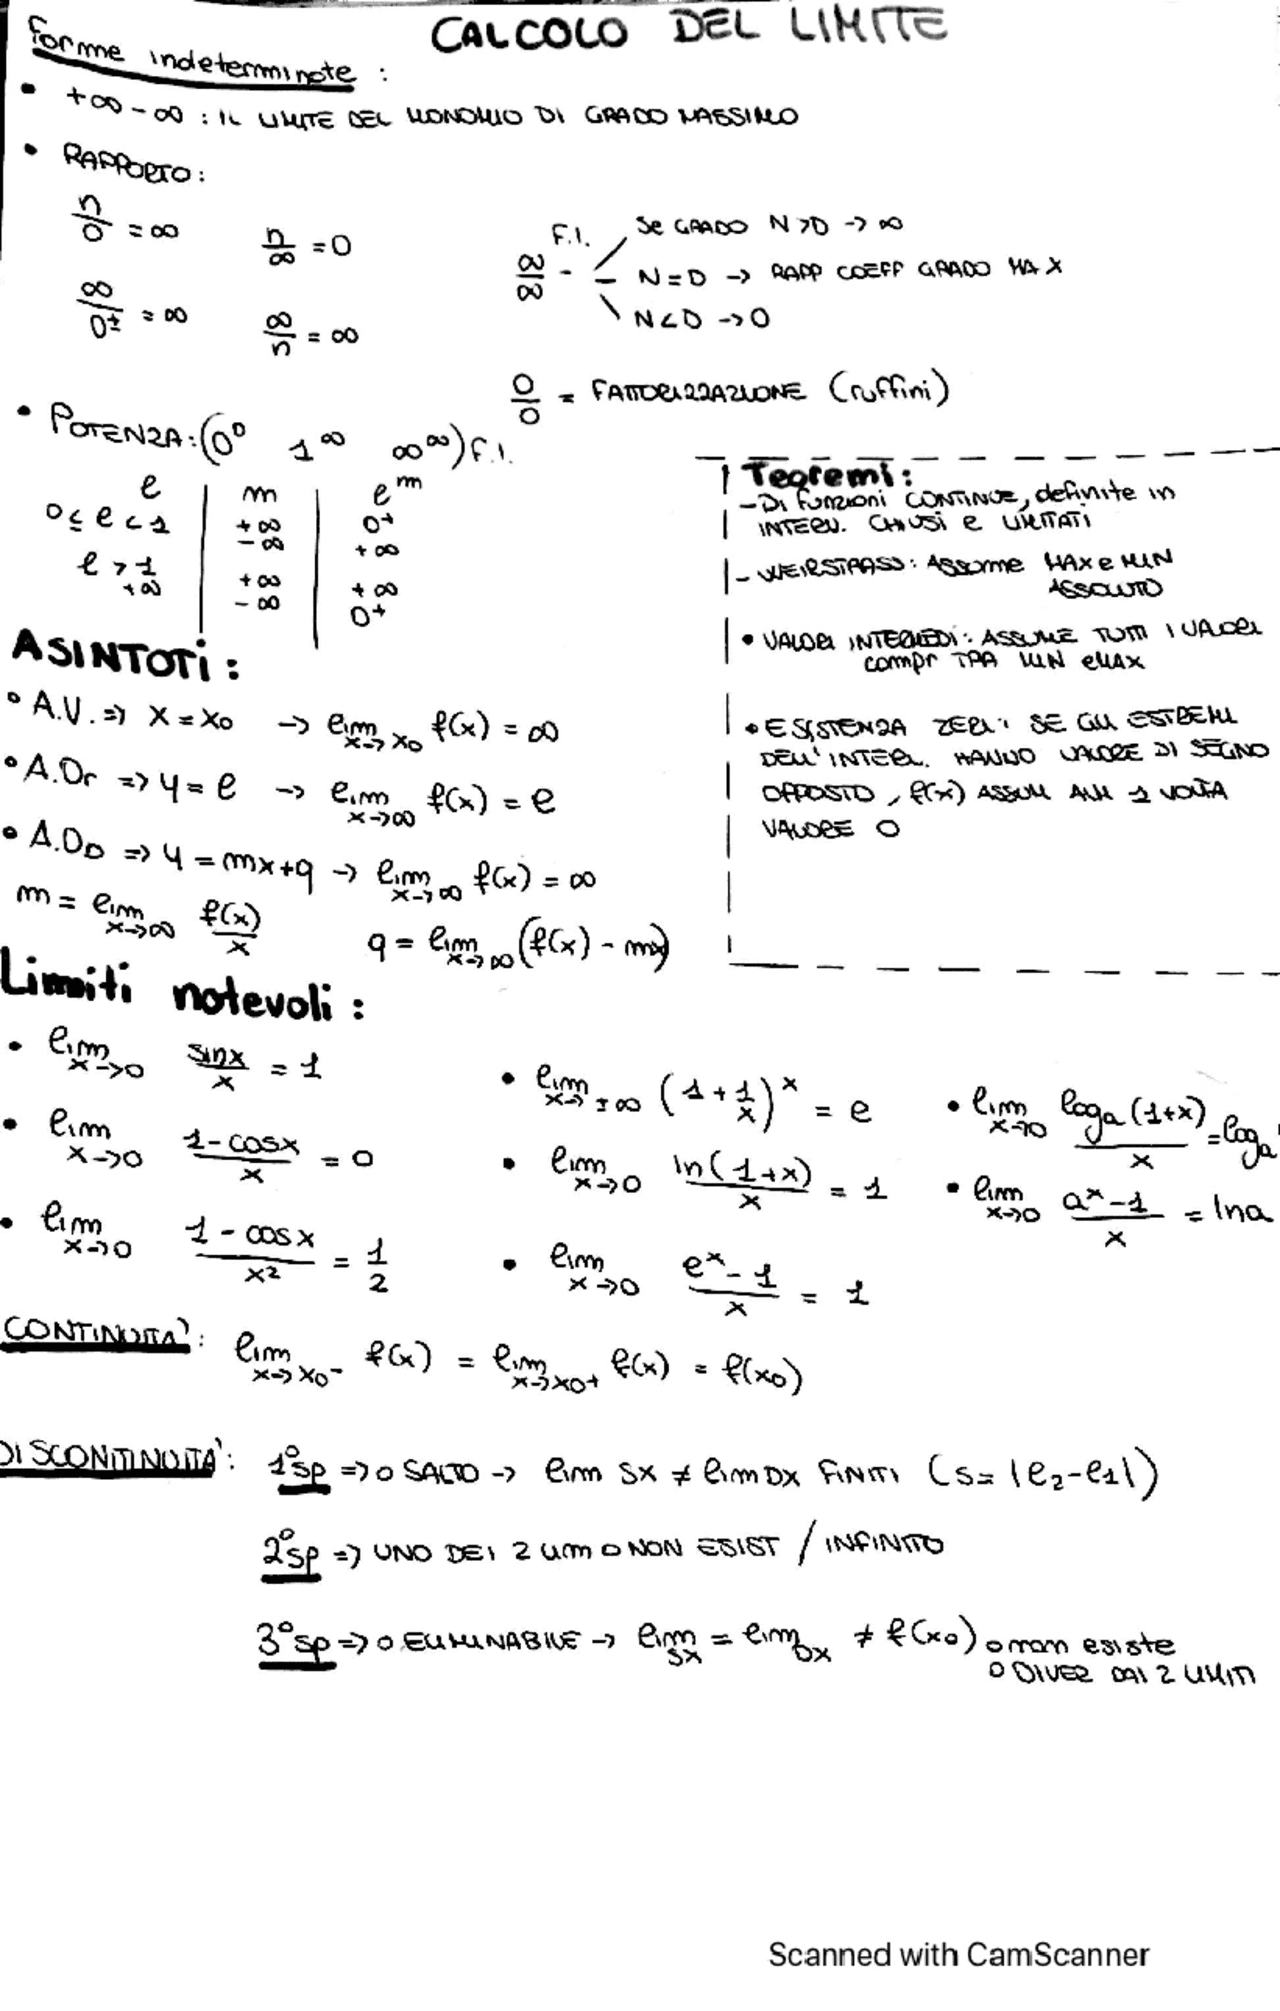 CALCOLO DEL LIMITE
forme indeterminate :
• +∞-∞ : IL LIMITE DEL MONOMIO DI GRADO MASSIMO
• RAPPORTO :
n/0 = ∞ n/∞ = 0
∞/0± = ∞ ∞/n = ∞
∞/∞ - F.I.
Se GRADO N>D -> ∞
N=D -> RAPP COEFF GRADO MAX
N<D -> 0
0/0 = FATTORIZZAZIONE (ruffini)
• POTENZA: (0⁰ 1^∞ ∞^∞) F.I.
l | m | l^m
0 ≤ l < 1 | +∞ | 0+
-∞ | +∞
l > 1 | +∞ | +∞
+∞ | -∞ | 0+
Teoremi :
- Di funzioni CONTINUE, definite in
INTERV. CHIUSI e LIMITATI
- WEIRSTRASS : ASSume MAX e MIN
ASSOLUTO
• VALORI INTERMEDI : ASSUME TUTTI I VALORI
compr TRA MIN e MAX
• ESISTENZA ZERI : SE GLI ESTREMI
DELL'INTERV. HANNO VALORE DI SEGNO
OPPOSTO, f(x) ASSUM ALM 1 VOLTA
VALORE 0
ASINTOTI :
• A.V. => x = x₀ -> lim x->x₀ f(x) = ∞
• A.Or => y = l -> lim x->∞ f(x) = l
• A.Ob => y = mx+q -> lim x->∞ f(x) = ∞
m = lim x->∞ f(x)/x q = lim x->∞ (f(x) - mx)
Limiti notevoli :
• lim x->0 sinx/x = 1
• lim x->0 1-cosx/x = 0
• lim x->0 1-cosx/x² = 1/2
• lim x->±∞ (1+1/x)^x = e
• lim x->0 ln(1+x)/x = 1
• lim x->0 e^x-1/x = 1
• lim x->0 loga(1+x)/x = loga
• lim x->0 a^x-1/x = lna
CONTINUITA' : lim x->x₀- f(x) = lim x->x₀+ f(x) = f(x₀)
DISCONTINUITA' : 1°sp => o SALTO -> lim SX ≠ lim DX FINITI (S= |l₂-l₁|)
2°sp => UNO DEI 2 LIM O NON ESIST / INFINITO
3°sp => o ELIMINABILE -> lim SX = lim DX ≠ f(x₀) o non esiste
o DIVER DAI 2 LIMITI
Scanned with CamScanner